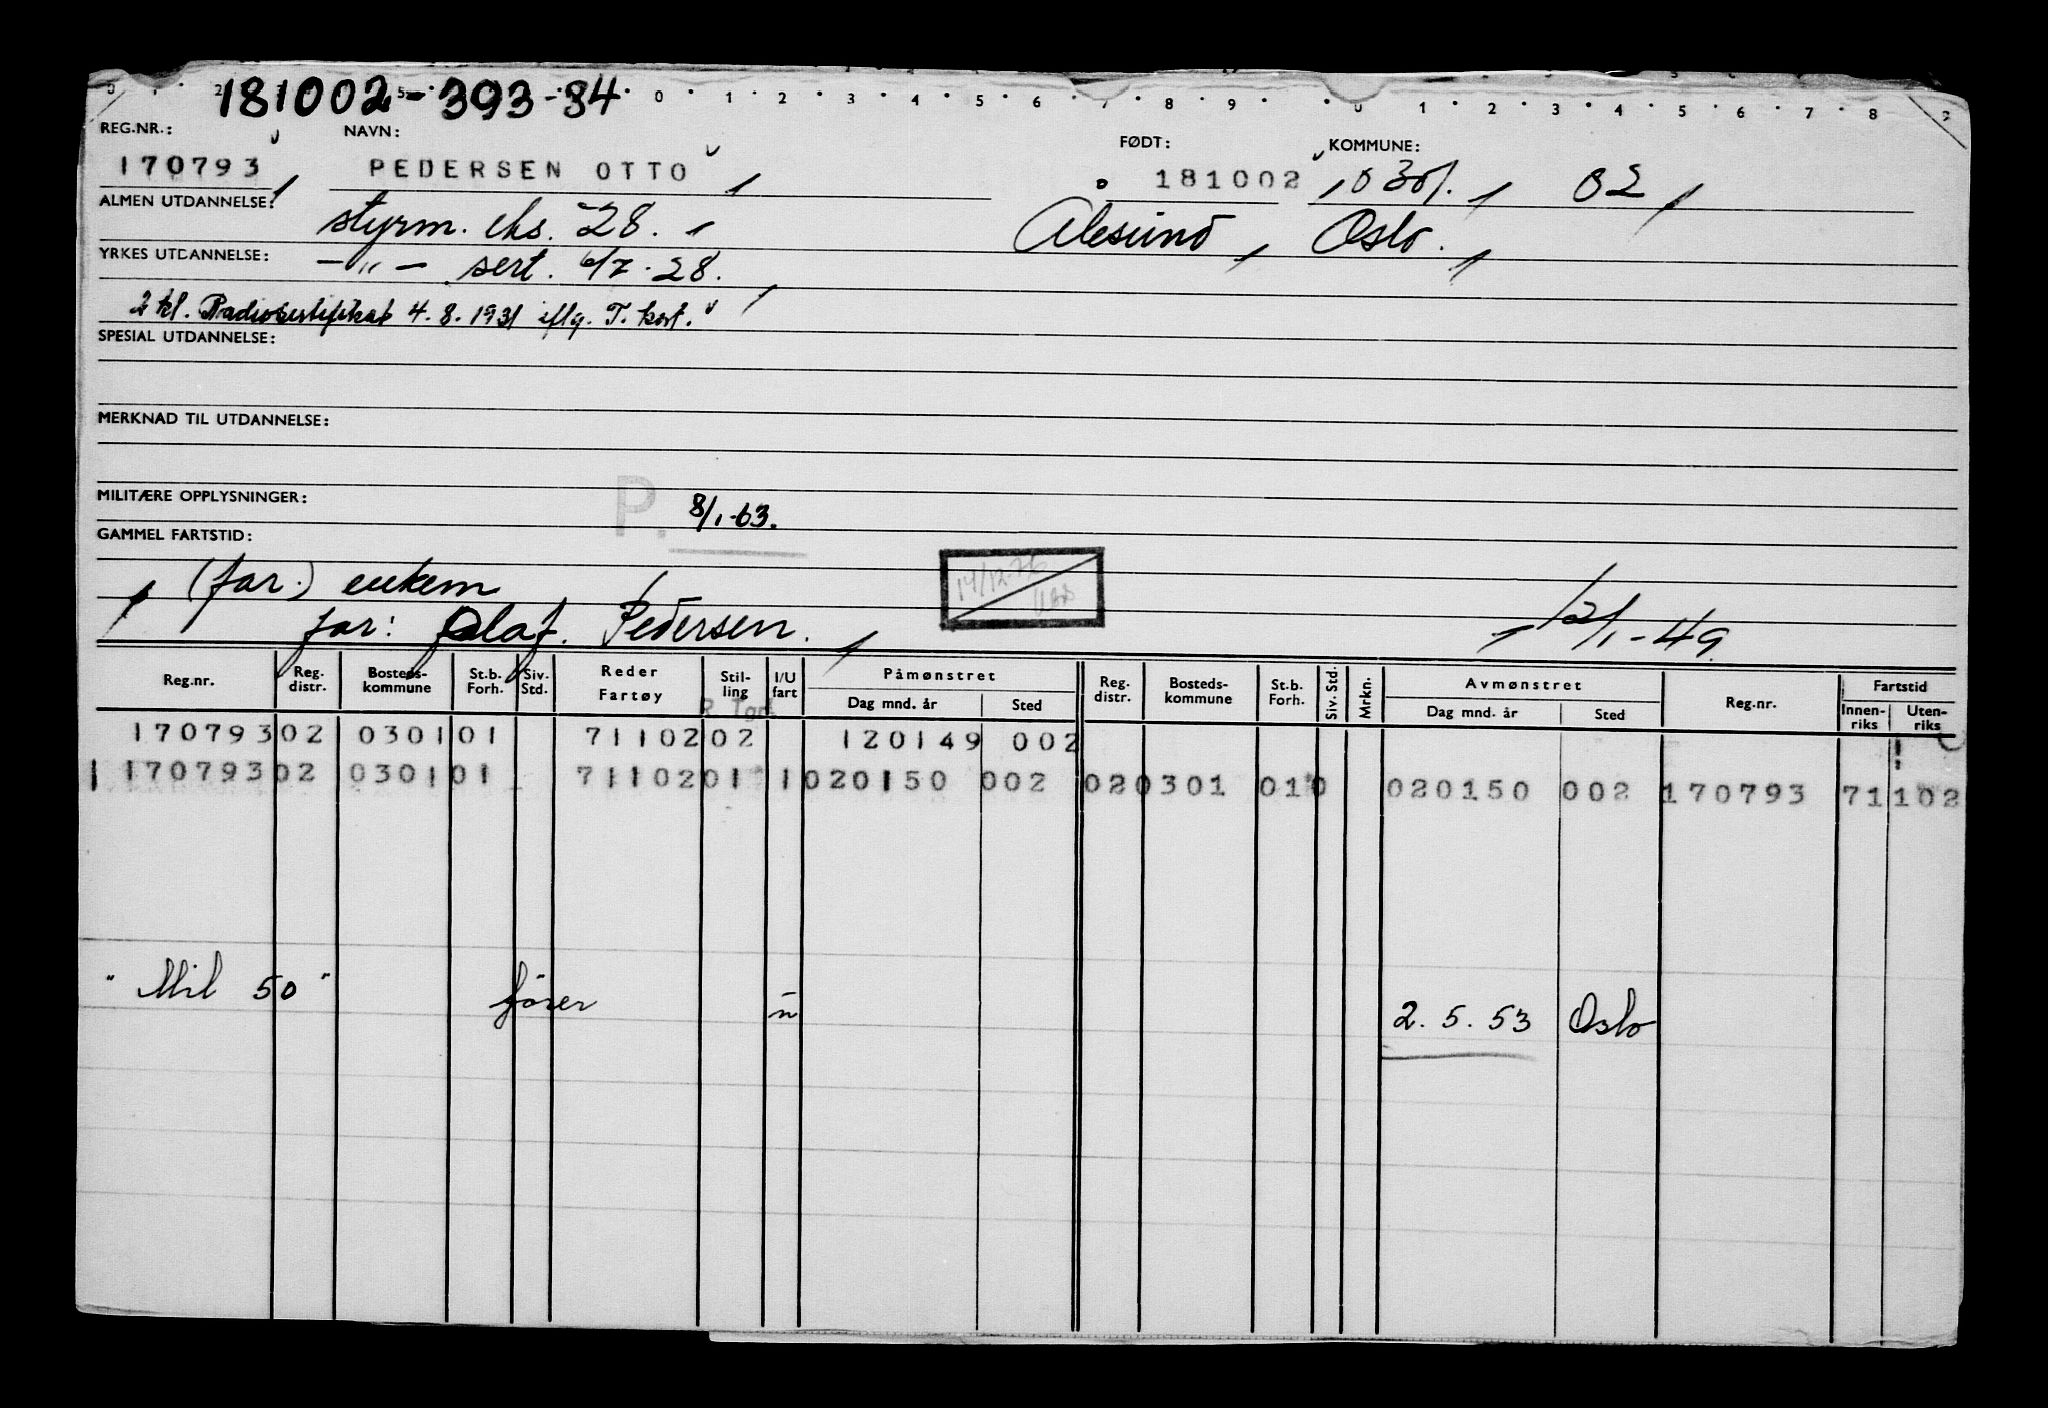 181002-393-84
REG.NR.: NAVN: FØDT: KOMMUNE:
170793 PEDERSEN OTTO 181002 0301. 02
ALMEN UTDANNELSE: styrm. eks. 28. Ålesund, Oslo.
YRKES UTDANNELSE: -"- sert. 6/7.28.
2 kl. Radiosertifikat 4.8.1931 iflg. T. kort.
SPESIAL UTDANNELSE:
MERKNAD TIL UTDANNELSE:
MILITÆRE OPPLYSNINGER: P. 8/1-63.
GAMMEL FARTSTID:
(far.) 14/12-76
far: Olaf. Pedersen. 12/1-49
Reg.nr. Reg. distr. Bosteds- kommune St.b. Forh. Siv. Std. Reder Fartøy Stil- ling I/U fart Påmønstret Dag mnd. år Sted Reg. distr. Bosteds- kommune St.b. Forh. Siv. Std. Mrkn. Avmønstret Dag mnd. år Sted Reg.nr. Fartstid Innen- riks Uten- riks
R Tgr.
170793 02 0301 01 71102 02 120149 002
1 170793 02 0301 01 71102 01 1 020150 002 02 0301 01 0 020150 002 170793 71102
"Mil 50" fører u 2.5.53 Oslo